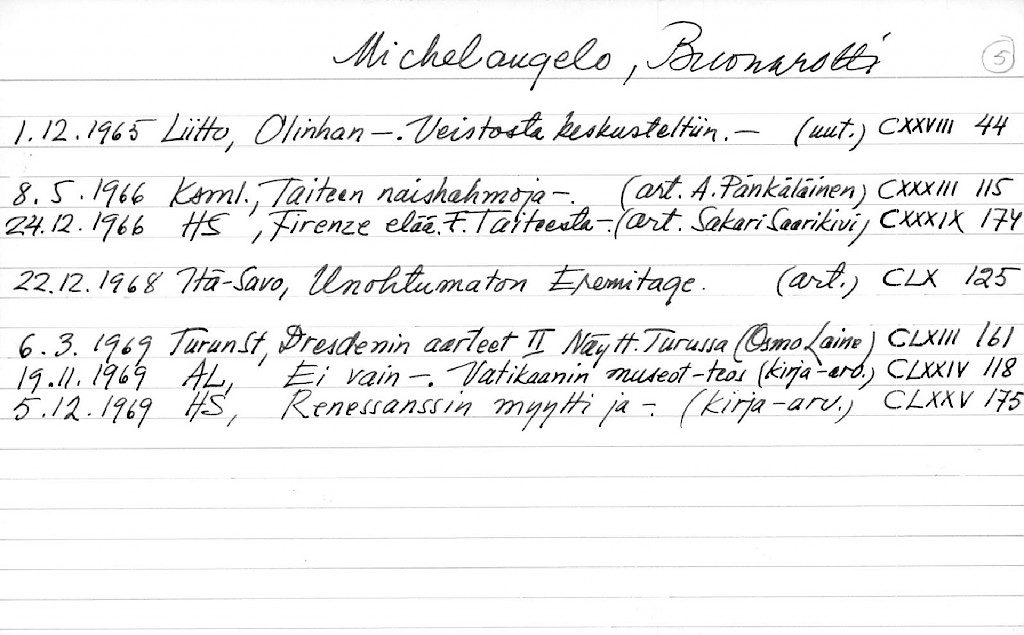 Michelangelo, Buonarotti 5
1.12.1965 Liitto, Olinhan —. Veistosta keskusteltiin. — (uut.) CXXVIII 44
8.5.1966 Ksml., Taiteen naishahmoja —. (art. A. Pänkäläinen) CXXXIII 115
24.12.1966 HS, Firenze elää. F. Taiteesta —. (art. Sakari Saarikivi) CXXXIX 174
22.12.1968 Itä-Savo, Unohtumaton Eremitage. (art.) CLX 125
6.3.1969 TurunSt, Dresdenin aarteet II Näytt. Turussa (Osmo Laine) CLXIII 161
19.11.1969 AL, Ei vain —. Vatikaanin museot-teos (kirja-arv.) CLXXIV 118
5.12.1969 HS, Renessanssin myytti ja —. (kirja-arv.) CLXXV 175